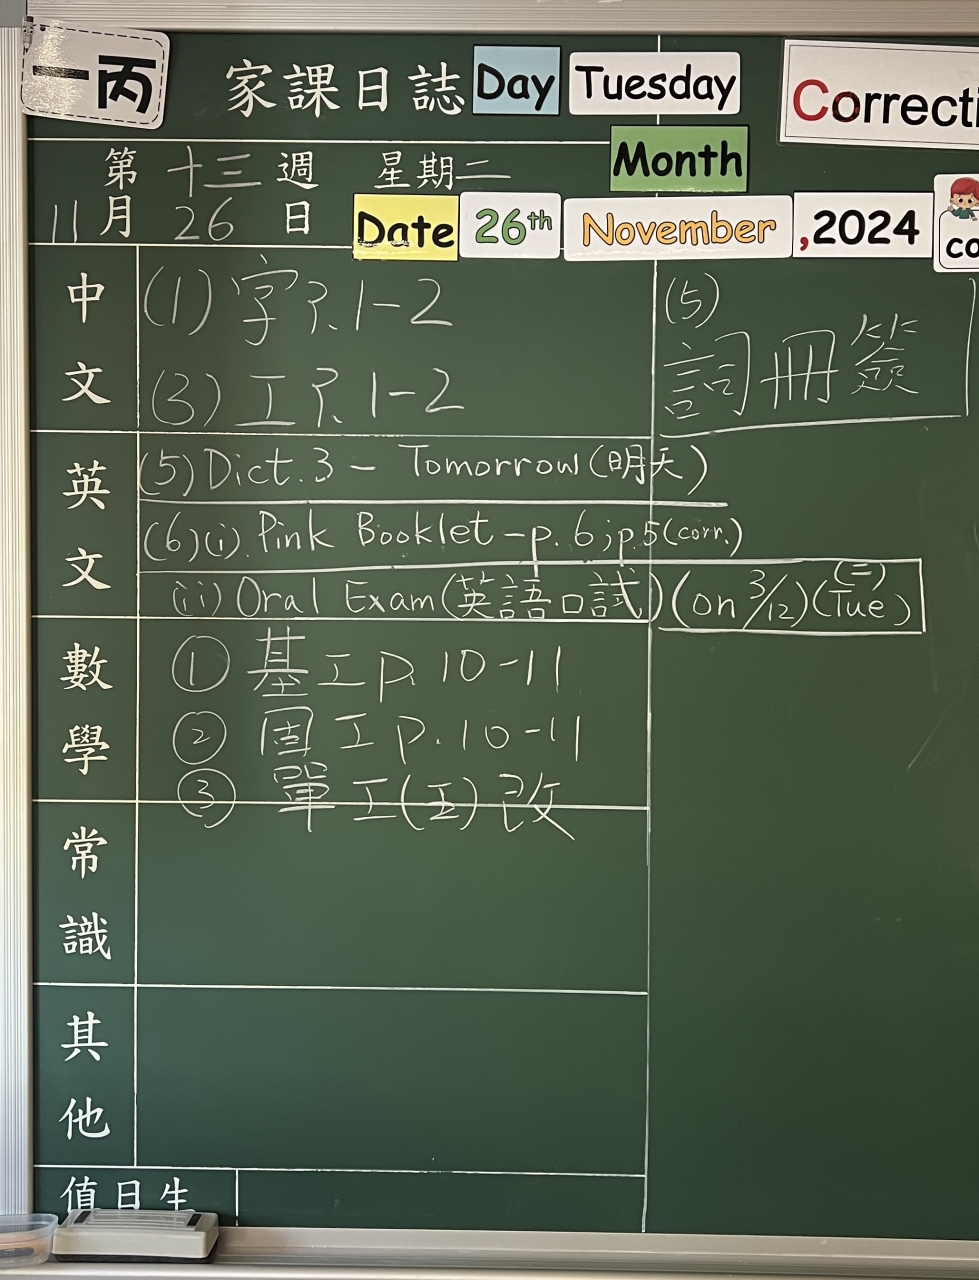 一丙
家課日誌 Day Tuesday
Correcti
Month
第十三週 星期二
11月26日
Date 26th November ,2024
co
中文
(1) 字P.1-2
(3) 工P.1-2
(5)
詞冊簽
英文
(5) Dict.3 - Tomorrow (明天)
(6)(i). Pink Booklet - p.6;p.5(corr.)
(ii) Oral Exam (英語口試) (on 3/12) (Tue) (二)
數學
① 基工p. 10-11
② 固工p.10-11
③ 單工(五)改
常識
其他
值日生